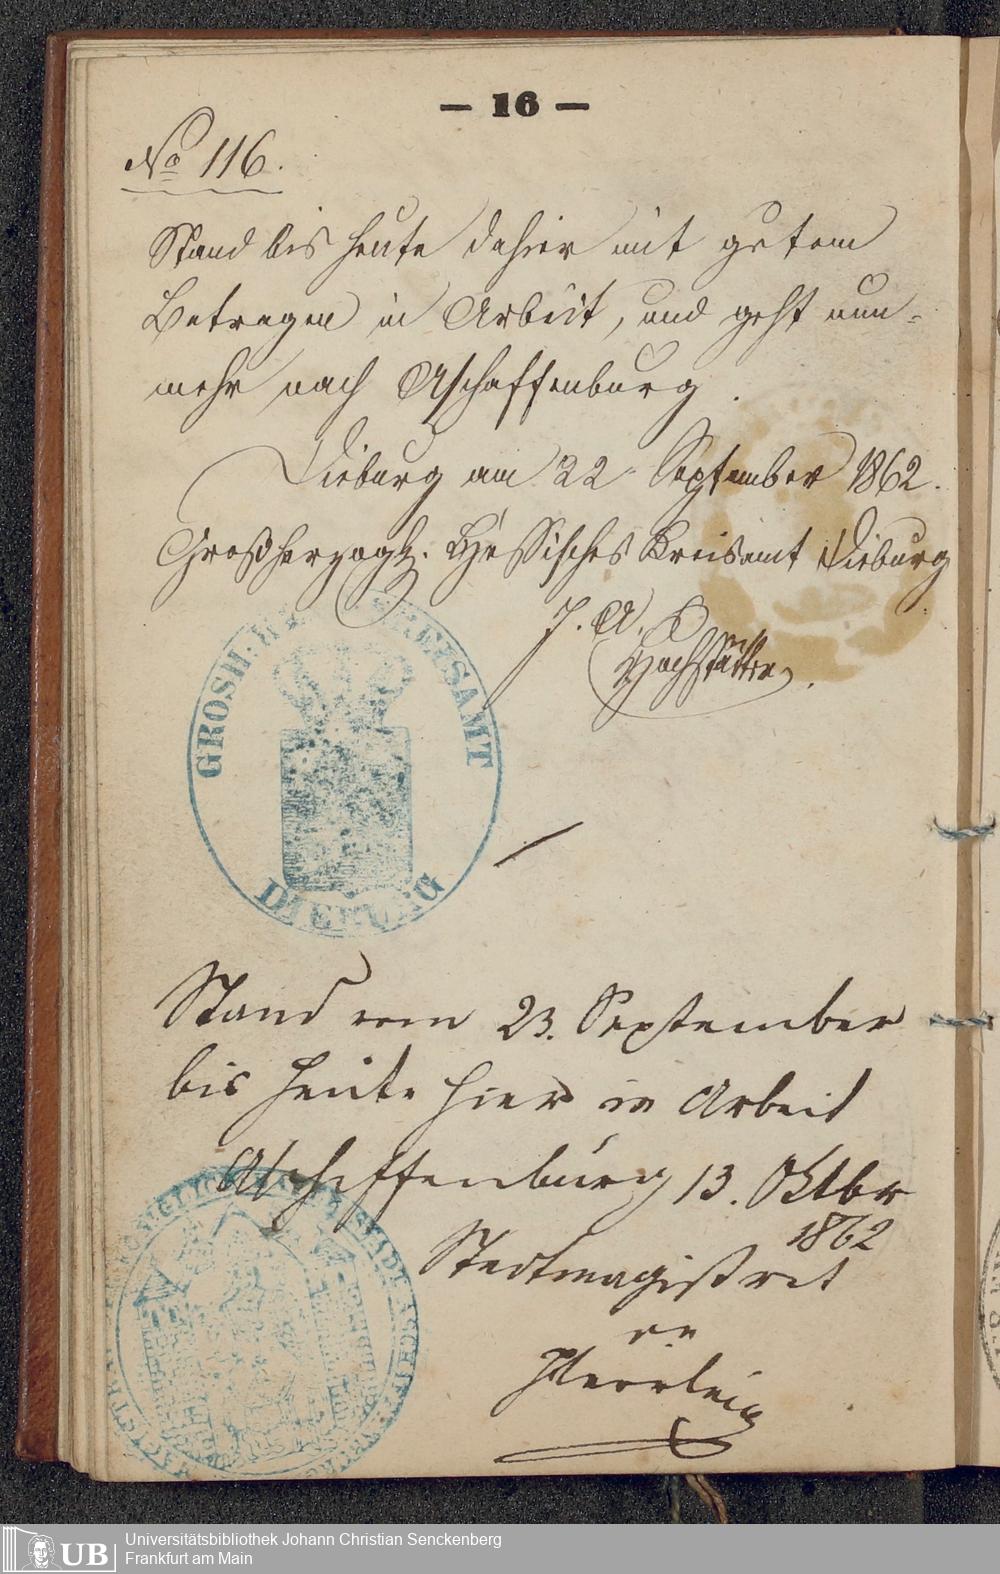 — 16 —
No 116.
Stand bis heute dahier mit gutem
Betragen in Arbeit, und geht nun=
mehr nach Aschaffenburg.
Dieburg am 22 September 1862.
Großherzogl. Hessisches Kreisamt Dieburg
J. A.
Hochstätter.
GROSH: KREISAMT
DIEBURG
Stand vom 23. September
bis heute hier in Arbeit
Aschaffenburg 13. Oktbr
1862
Stadtmagistrat
Herrlein
STADT ASCHAFFENBURG
UB
Universitätsbibliothek Johann Christian Senckenberg
Frankfurt am Main